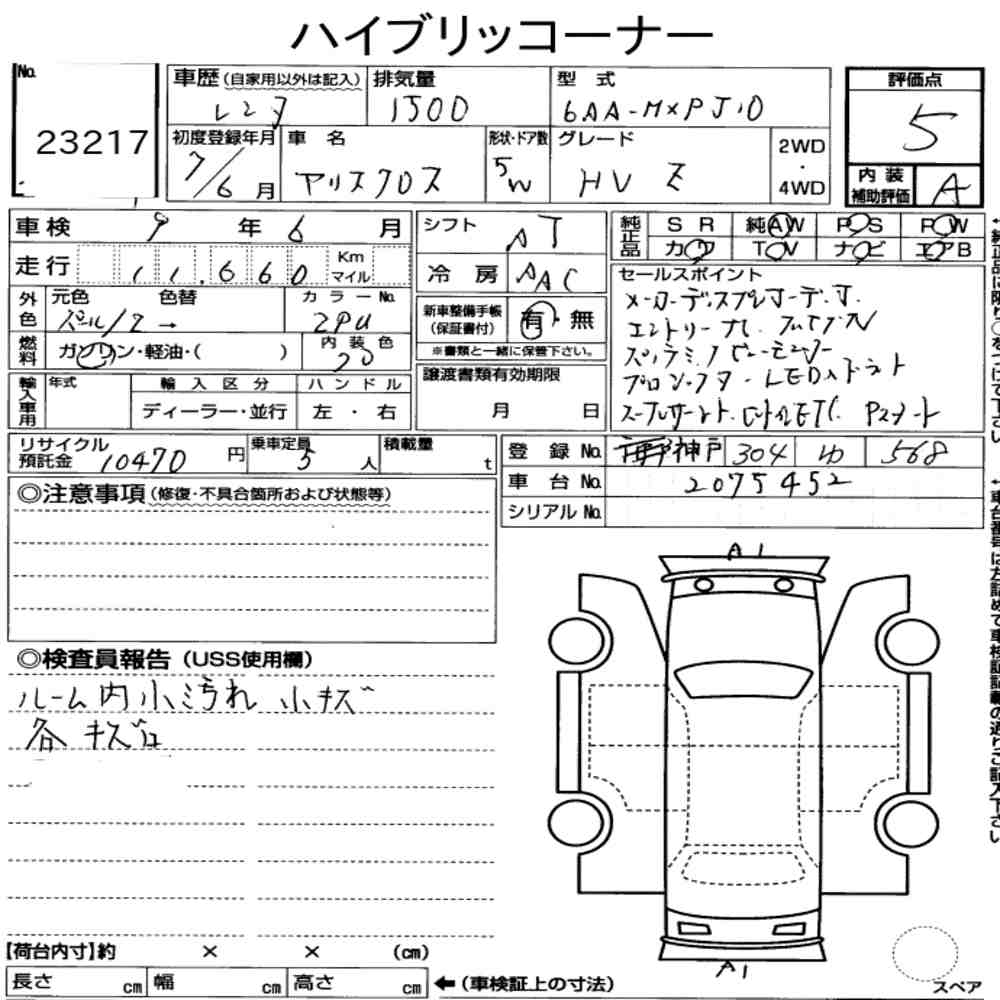 ハイブリッコーナー
No. 23217
車歴(自家用以外は記入) レンタ
排気量 1500
型式 6AA-MXPJ10
評価点 5
初度登録年月 7/6月
車名 ヤリスクロス
形状・ドア数 5W
グレード HV Z
2WD・4WD
内装補助評価 A
車検 9年6月
走行 11,660 Km マイル
シフト AT
冷房 AAC
純正品 SR 純AW PS PW
カワ TV ナビ エアB
外色 元色 パール/2 色替 →
カラーNo. 2PU
燃料 ガソリン・軽油・( )
内装色
新車整備手帳(保証書付) 有・無
※書類と一緒に保管下さい。
セールスポイント
メーカーディスプレイオーディオ
エントリーナビ フルセグTV
パノラミックビューモニター
ブラインドスポット LEDヘッドライト
ETC
輸入車用 年式 輸入区分 ハンドル
ディーラー・並行 左・右
譲渡書類有効期限 月 日
リサイクル預託金 10470円
乗車定員 5人
積載量 t
登録No. 神戸 304 ゆ 568
車台No. 2075452
シリアルNo.
◎注意事項(修復・不具合箇所および状態等)
◎検査員報告(USS使用欄)
ルーム内小汚れ 小キズ
各キズ
A1
A1
【荷台内寸】約 × × (cm)
長さ cm 幅 cm 高さ cm ←(車検証上の寸法)
スペア